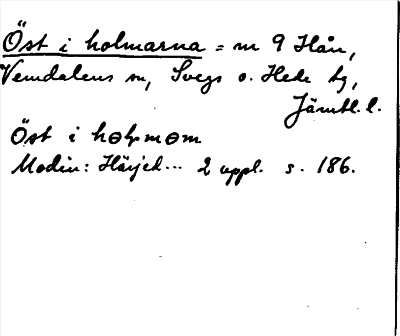 Öst i holmarna = m 9 Hån,
Vemdalens sn, Svegs o. Hede tg,
Jämtl. l.
Öst i hɵlmɵm
Modin: Härjed... 2 uppl. s. 186.